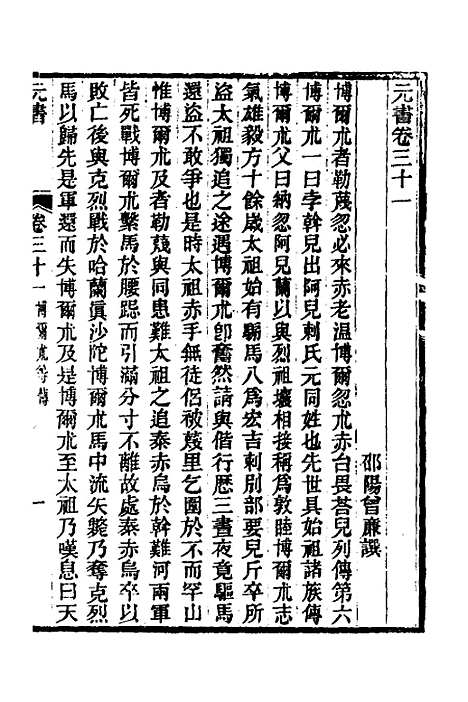 元書卷三十一
邵陽曾廉譔
博爾朮者勒蔑忽必來赤老温博爾忽朮赤台畏荅兒列傳第六
博爾朮一曰孛斡兒出阿兒剌氏元同姓也先世具始祖諸族傳
博爾朮父曰納忽阿兒蘭以與烈祖壤相接稱爲敦睦博爾朮志
氣雄毅方十餘歲太祖始有騸馬八爲宏吉剌別部要兒斤卒所
盜太祖獨追之途遇博爾朮卽奮然請與偕行歴三晝夜竟驅馬
還盜不敢爭也是時太祖赤手無徒侶被蔑里乞圍於不而罕山
惟博爾朮及者勒蔑與同患難太祖之追泰赤烏於斡難河兩軍
皆死戰博爾朮繫馬於腰跽而引滿分寸不離故處泰赤烏卒以
敗亡後與克烈戰於哈蘭眞沙陀博爾朮馬中流矢斃乃奪克烈
馬以歸先是軍還而失博爾朮及是博爾朮至太祖乃嘆息曰天
元書
卷三十一 博爾朮等傳
一